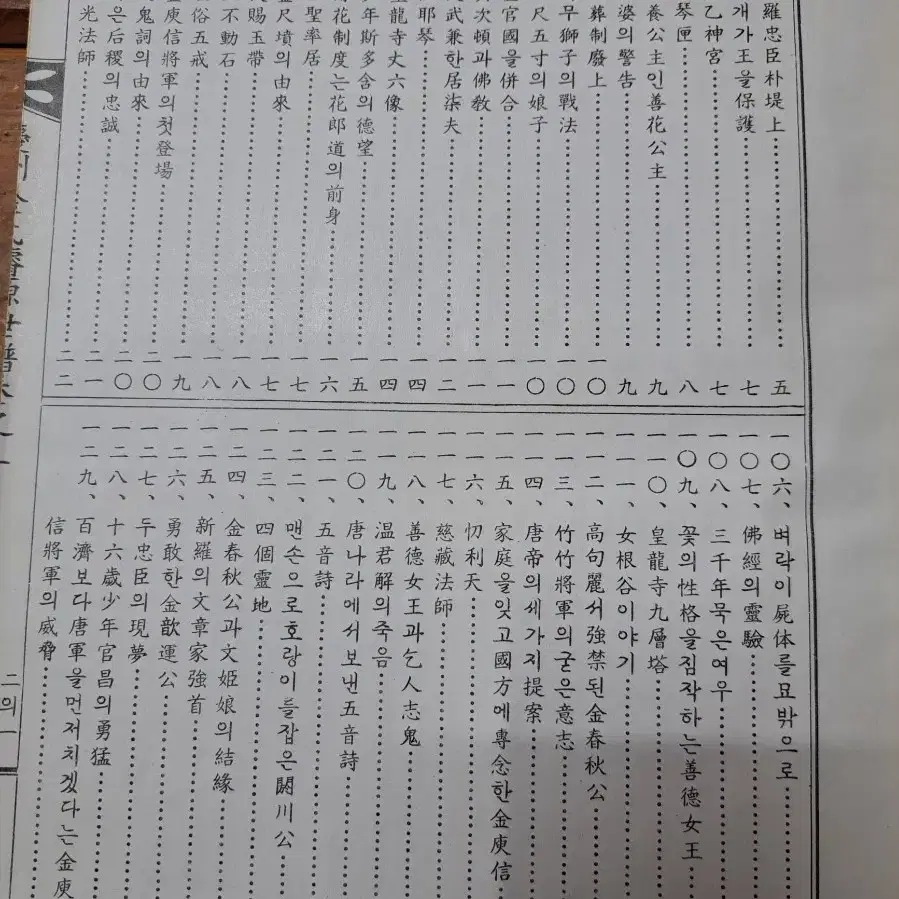 羅忠臣朴堤上 五
개가王을保護 七
乙神宮 七
琴匣 八
養公主인善花公主 九
婆의警告 九
葬制廢上 一〇
무獅子의戰法 一〇
尺五寸의娘子 一〇
官國을併合 一一
次頓과佛敎 一一
武兼한居柒夫 一二
耶琴 一四
龍寺丈六像 一四
年斯多含의德望 一五
花制度는花郎道의前身 一六
聖率居 一七
尺墳의由來 一七
賜玉帶 一八
不動石 一八
俗五戒 一九
庾信將軍의첫登場 二〇
鬼詞의由來 二〇
은后稷의忠誠 二一
光法師 二二
一〇六、벼락이屍体를묘밖으로
一〇七、佛經의靈驗
一〇八、三千年묵은여우
一〇九、꽃의性格을짐작하는善德女王
一一〇、皇龍寺九層塔
一一一、女根谷이야기
一一二、高句麗서強禁된金春秋公
一一三、竹竹將軍의굳은意志
一一四、唐帝의세가지提案
一一五、家庭을잊고國方에專念한金庾信
一一六、忉利天
一一七、慈藏法師
一一八、善德女王과乞人志鬼
一一九、温君解의죽음
一二〇、唐나라에서보낸五音詩
一二一、五音詩
一二二、맨손으로호랑이를잡은閼川公
一二三、四個靈地
一二四、金春秋公과文姫娘의結緣
一二五、新羅의文章家強首
一二六、勇敢한金歆運公
一二七、두忠臣의現夢
一二八、十六歲少年官昌의勇猛
一二九、百濟보다唐軍을먼저치겠다는金庾
信將軍의威脅
二의一